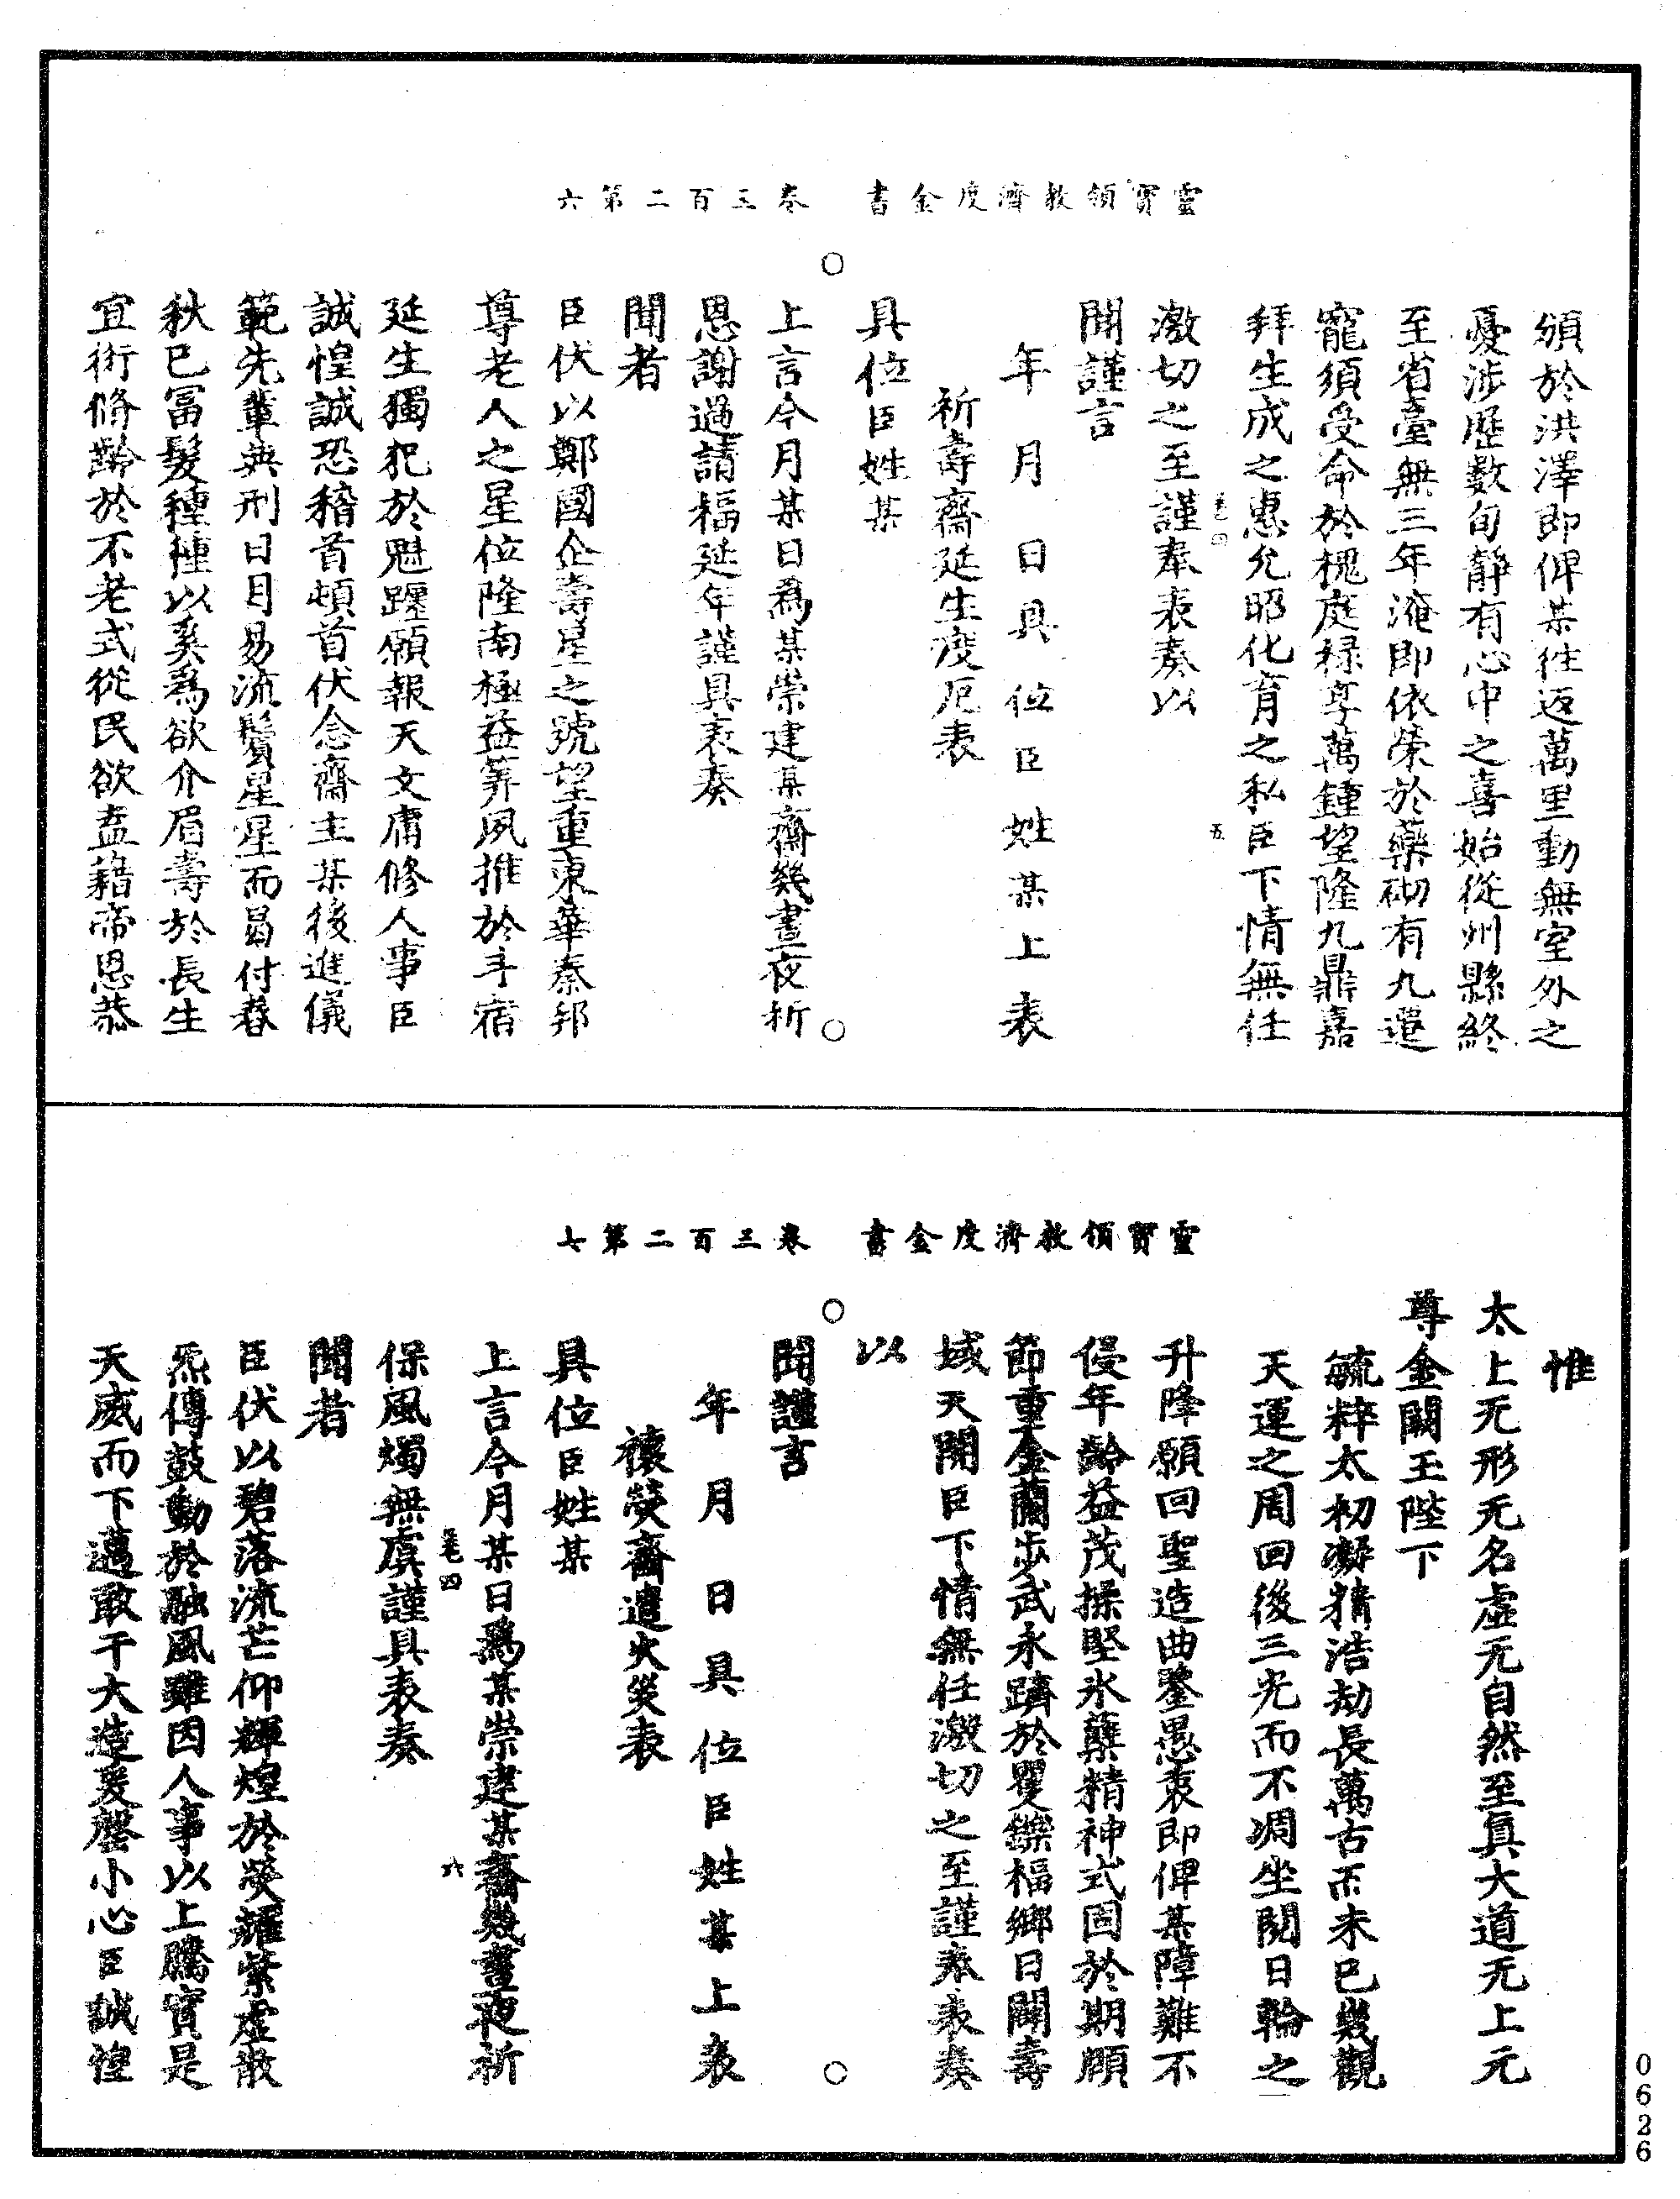 靈寶領教濟度金書　卷三百二第六
頒於洪澤即俾某往返萬里動無室外之
憂涉歷數旬靜有心中之喜始從州縣終
至省臺無三年淹即依榮於藥砌有九遷
寵須受命於槐庭祿享萬鍾望隆九鼎嘉
拜生成之惠允昭化育之私臣下情無任
五
激切之至謹奉表奏以
聞謹言
年　月　日具　位臣　姓某上　表
祈壽齋延生度厄表
具位臣姓某
上言今月某日為某崇建某齋幾晝夜祈
恩謝過請福延年謹具表奏
聞者
臣伏以鄭國企壽星之號望重東華秦邦
尊老人之星位隆南極益筭夙推於斗宿
延生獨犯於魁躔願報天文庸修人事臣
誠惶誠恐稽首頓首伏念齋主某後進儀
範先輩典刑日月易流鬢星星而曷付春
秋已冨髮種種以奚為欲介眉壽於長生
宜衍脩齡於不老式從民欲盍藉帝恩恭
靈寶領教濟度金書　卷三百二第七
惟
太上无形无名虛无自然至真大道无上元
尊金闕玉陛下
毓粹太初凝精浩劫長萬古而未已幾觀
天運之周回後三光而不凋坐閱日輪之
升降願回聖造曲鑒愚衷即俾某障難不
侵年齡益茂操堅氷蘗精神式固於期頤
節重金蘭步武永躋於矍鑠福鄉日闢壽
域天開臣下情無任激切之至謹奉表奏
以
聞謹言
年　月　日　具　位臣姓某上　表
禳熒齋遣火災表
具位臣姓某
上言今月某日為某崇建某齋幾晝夜祈
四　六
保風燭無虞謹具表奏
聞者
臣伏以碧落流芒仰輝煌於熒耀紫虛散
炁傳鼓動於融風雖因人事以上騰實是
天威而下邁敢干大造爰罄小心臣誠惶
0626